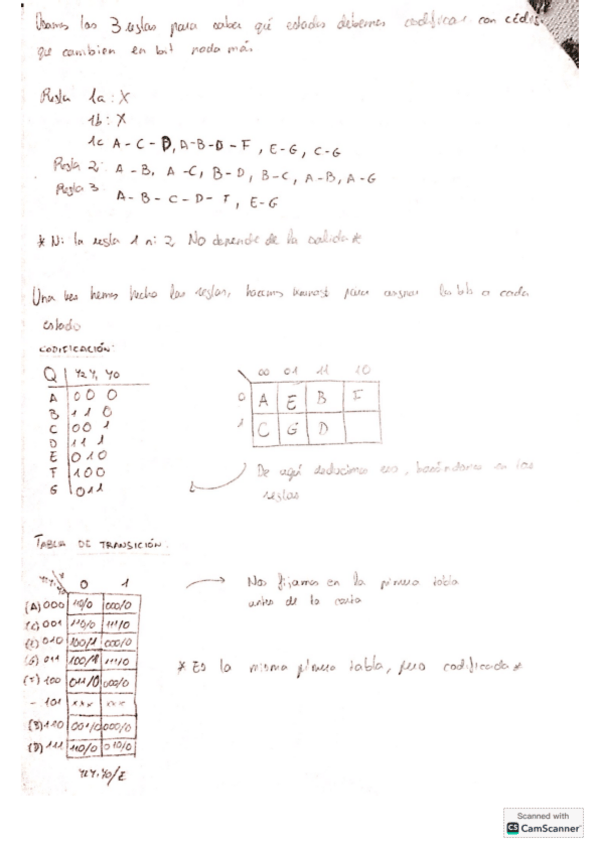 Usamos las 3 reglas para saber qué estados debemos codificar con código
que cambien en bit nada más.
Regla 1a : X
1b : X
1c A - C - D, A - B - D - F , E - G , C - G
Regla 2: A - B, A - C, B - D, B - C, A - B, A - G
Regla 3
A - B - C - D - F , E - G
* Ni la regla 1 ni 2 No depende de la salida *
Una vez hemos hecho las reglas, hacemos para asignar a cada
estado
CODIFICACIÓN:
Q Y2 Y1 Y0
A 0 0 0
B 1 1 0
C 0 0 1
D 1 1 1
E 0 1 0
F 1 0 0
G 0 1 1
00 01 11 10
0 A E B F
1 C G D
De aquí deducimos eso, basándonos en las
reglas
TABLA DE TRANSICIÓN:
0 1
(A) 000 110/0 000/0
(C) 001 110/0 111/0
(E) 010 100/1 000/0
(G) 011 100/1 111/0
(F) 100 011/0 000/0
- 101 xxx xxx
(B) 110 001/0 000/0
(D) 111 110/0 010/0
Y2 Y1 Y0/Z
Nos fijamos en la primera tabla
antes de la
* Es la misma primera tabla, pero codificada *
Scanned with
CS CamScanner